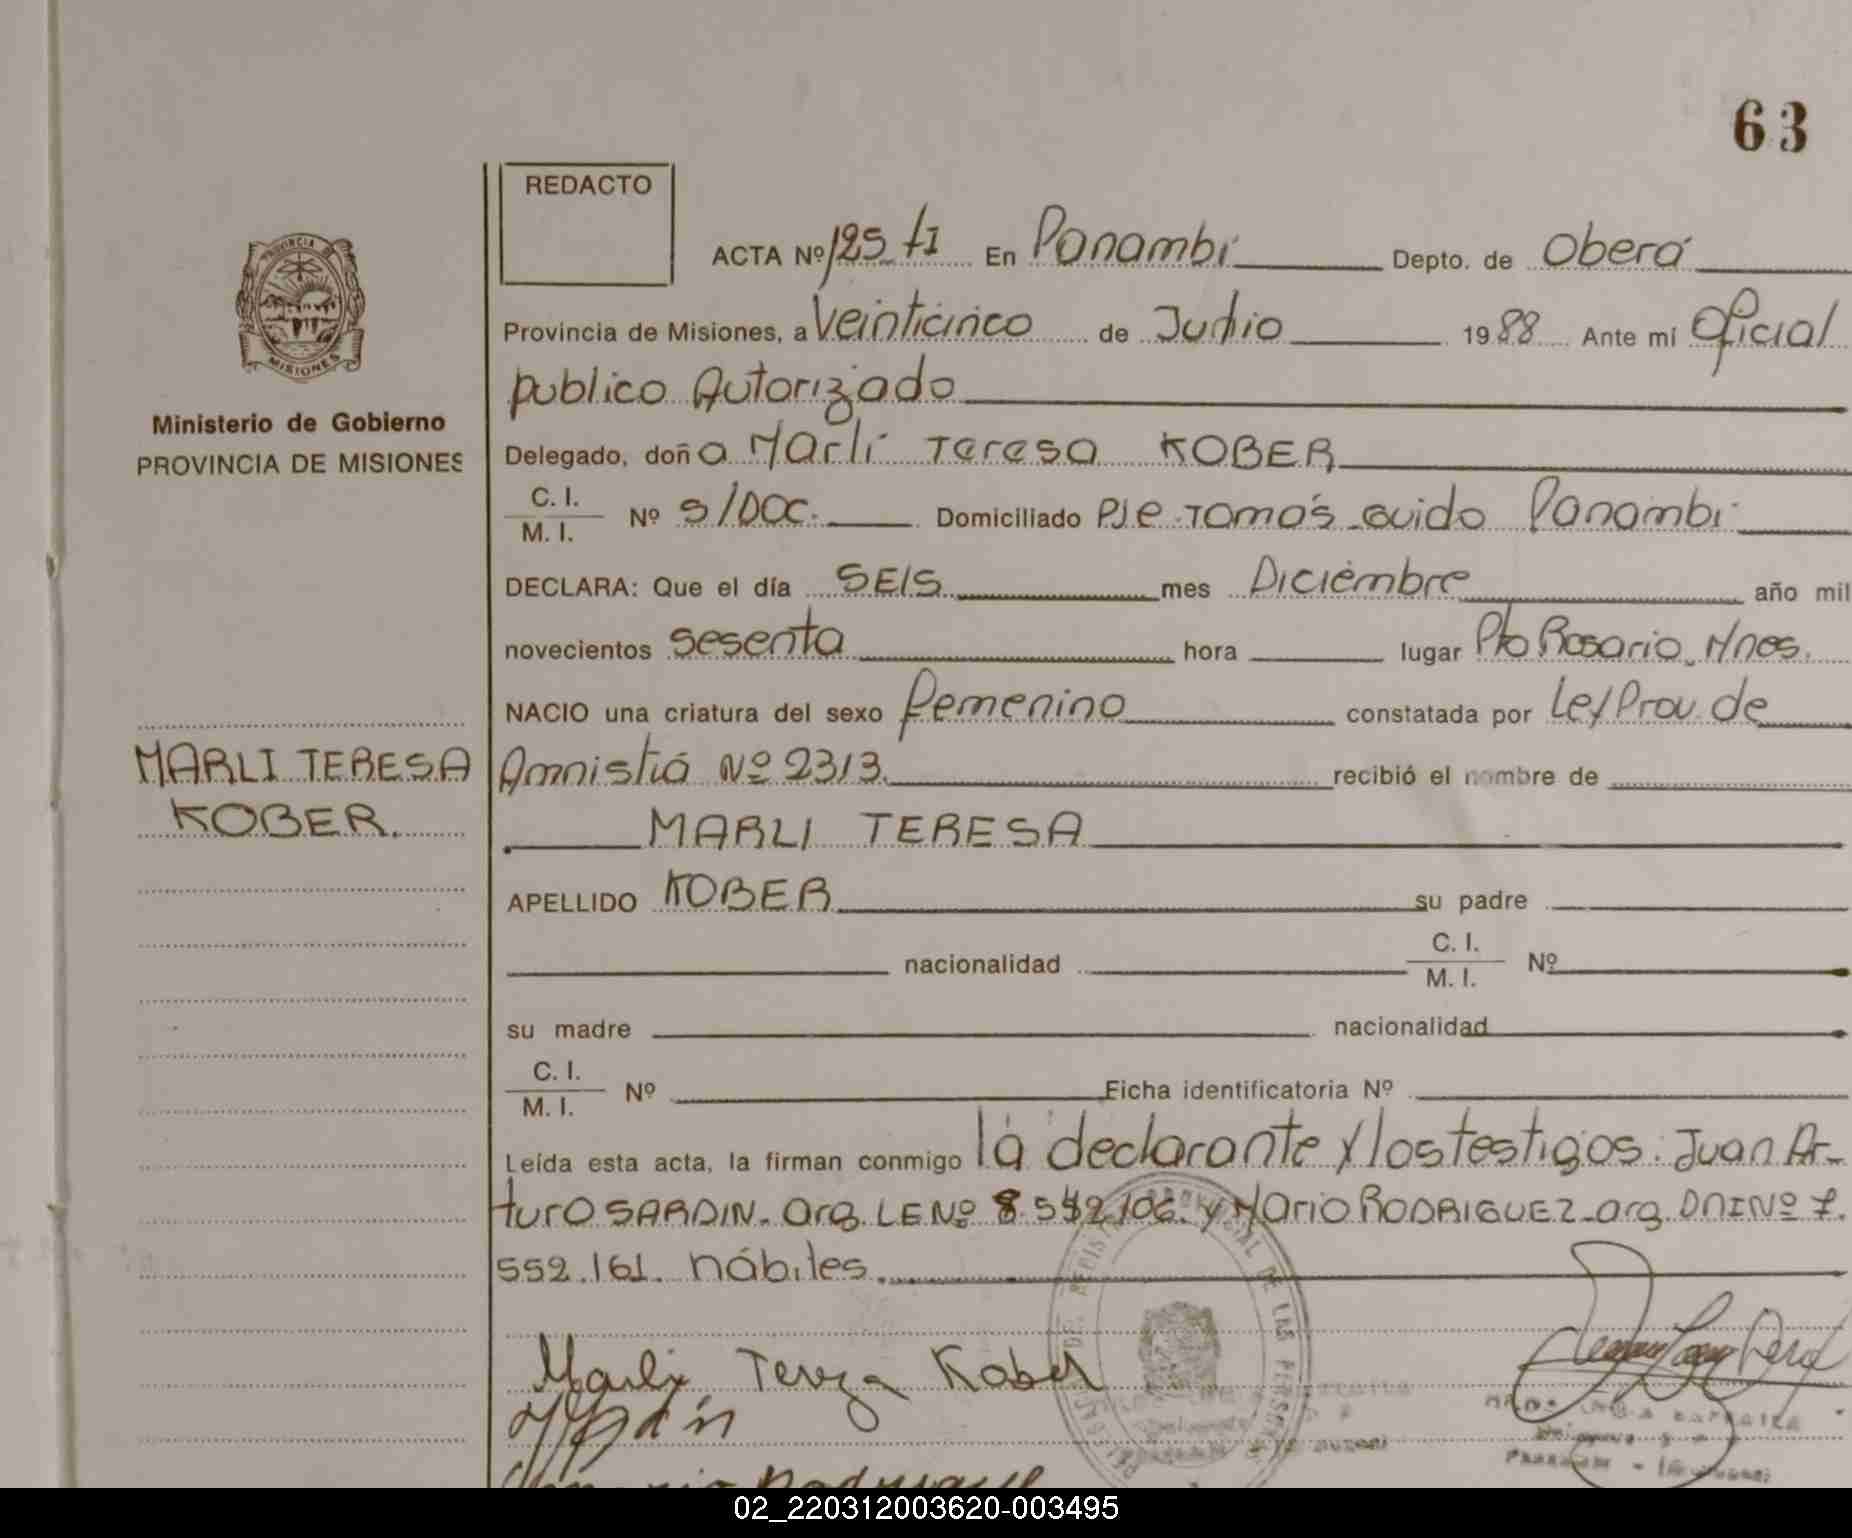 63
REDACTO
ACTA Nº 125 tI En Panambi Depto. de Oberá
Provincia de Misiones, a Veinticinco de Junio 1988 Ante mí Oficial
publico Autorizado
Ministerio de Gobierno
PROVINCIA DE MISIONES
Delegado, doña Marli Teresa KOBER
C. I.
M. I. Nº S/DOC. Domiciliado PJe Tomás Guido Panambi
DECLARA: Que el día SEIS mes Diciembre año mil
novecientos sesenta hora lugar Pto Rosario Mnes.
NACIO una criatura del sexo femenino constatada por Ley Prov. de
MARLI TERESA
KOBER.
Amnistiá Nº 2313. recibió el nombre de
MARLI TERESA
APELLIDO KOBER su padre
nacionalidad C. I.
M. I. Nº
su madre nacionalidad
C. I.
M. I. Nº Ficha identificatoria Nº
Leída esta acta, la firman conmigo la declarante y los testigos: Juan Ar-
turo SARDIN. arg. LE Nº 8.542.106. y Mario RODRIGUEZ arg. DNI Nº 7.
552.161. hábiles.
Marli Tereza Kober
02_220312003620-003495